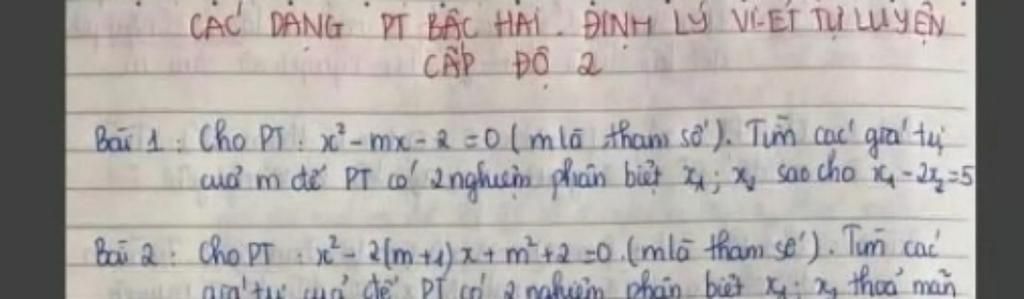 CÁC DẠNG PT BẬC HAI. ĐỊNH LÝ VI-ET TỰ LUYỆN
CẤP ĐỘ 2
Bài 1: Cho PT: x² - mx - 2 = 0 (m là tham số). Tìm các giá trị
của m để PT có 2 nghiệm phân biệt x₁; x₂ sao cho x₁ - 2x₂ = 5
Bài 2: Cho PT: x² - 2(m+1)x + m² + 2 = 0. (m là tham số). Tìm các
giá trị của để PT có 2 nghiệm phân biệt x₁; x₂ thoả mãn